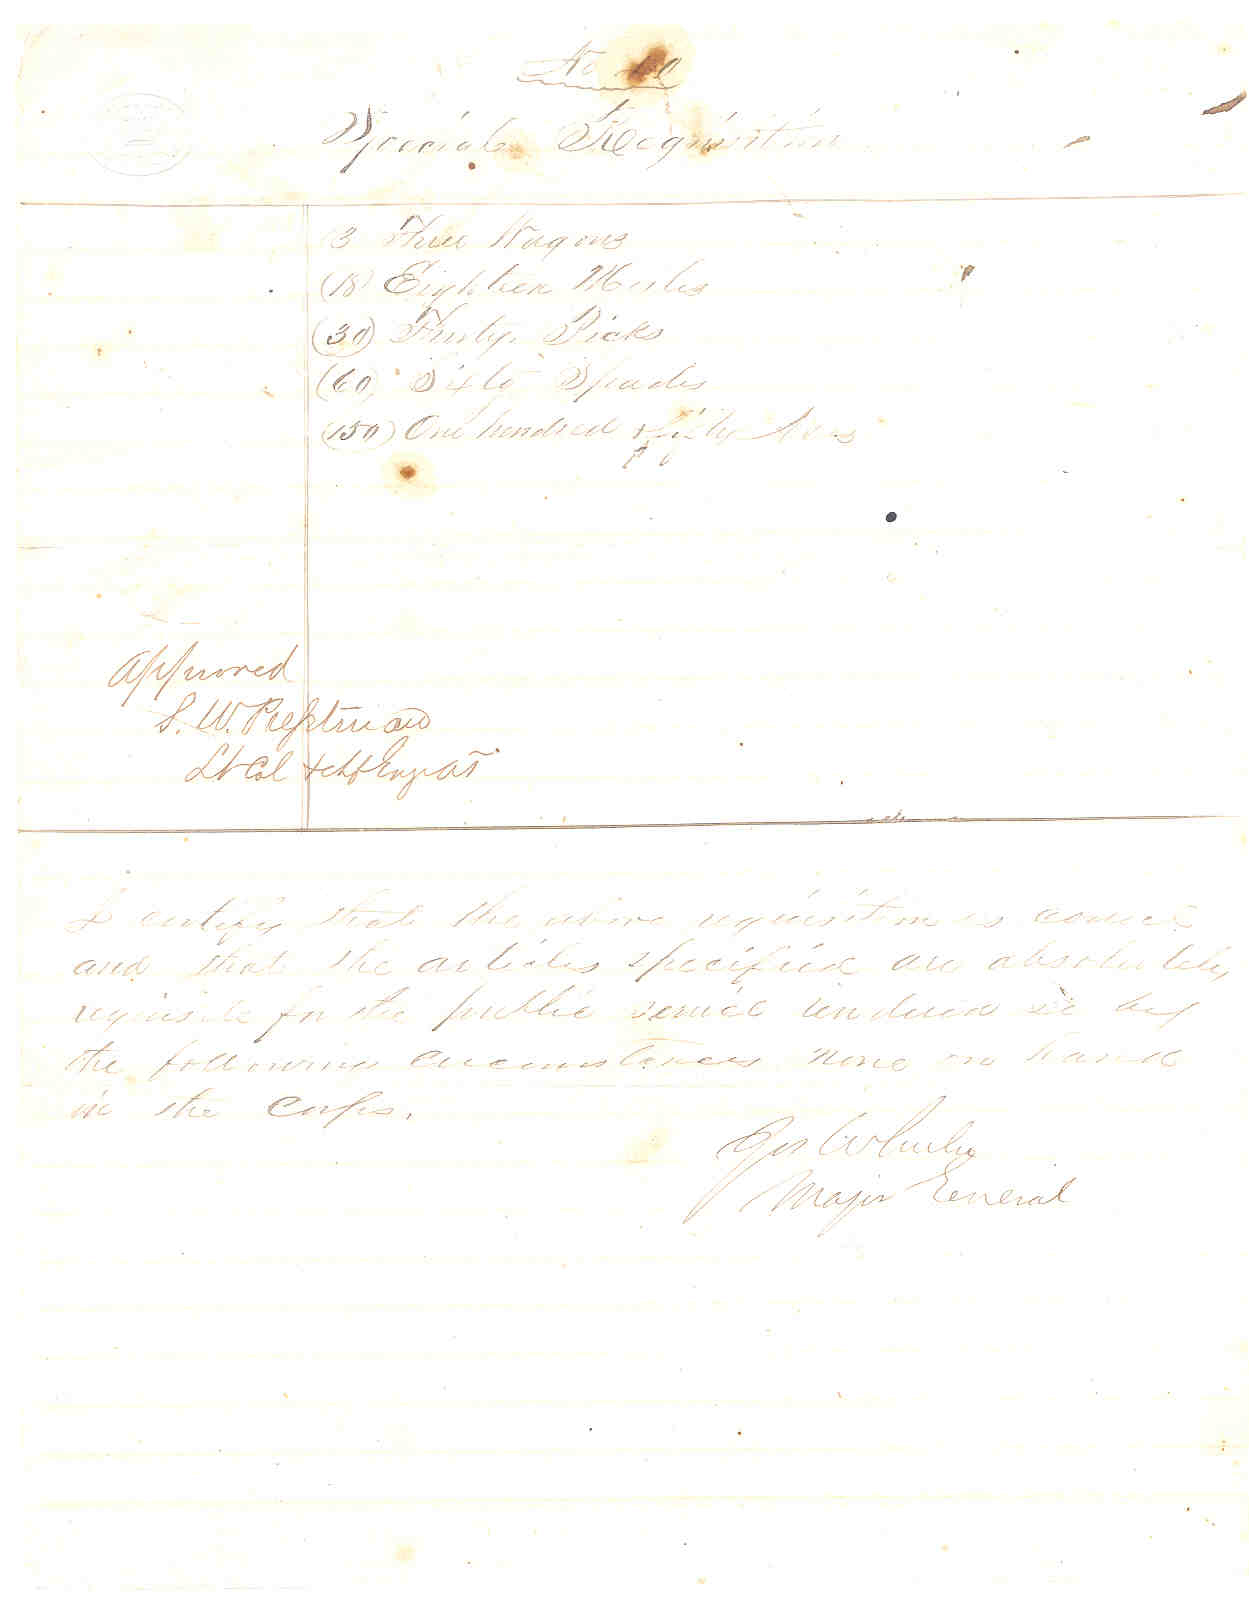 No 40
Special Requisition
(3 Three Wagons
(18) Eighteen Mules
(30) Thirty Picks
(60) Sixty Spades
(150) One hundred & fifty Axes
Approved
S. W. Presstman
Lt Col & chf Engr AT
I certify that the above requisition is correct
and that the articles specified are absolutely
requisite for the public service rendered so by
the following circumstances none on hand
in the Corps.
Jos Wheeler
Major General